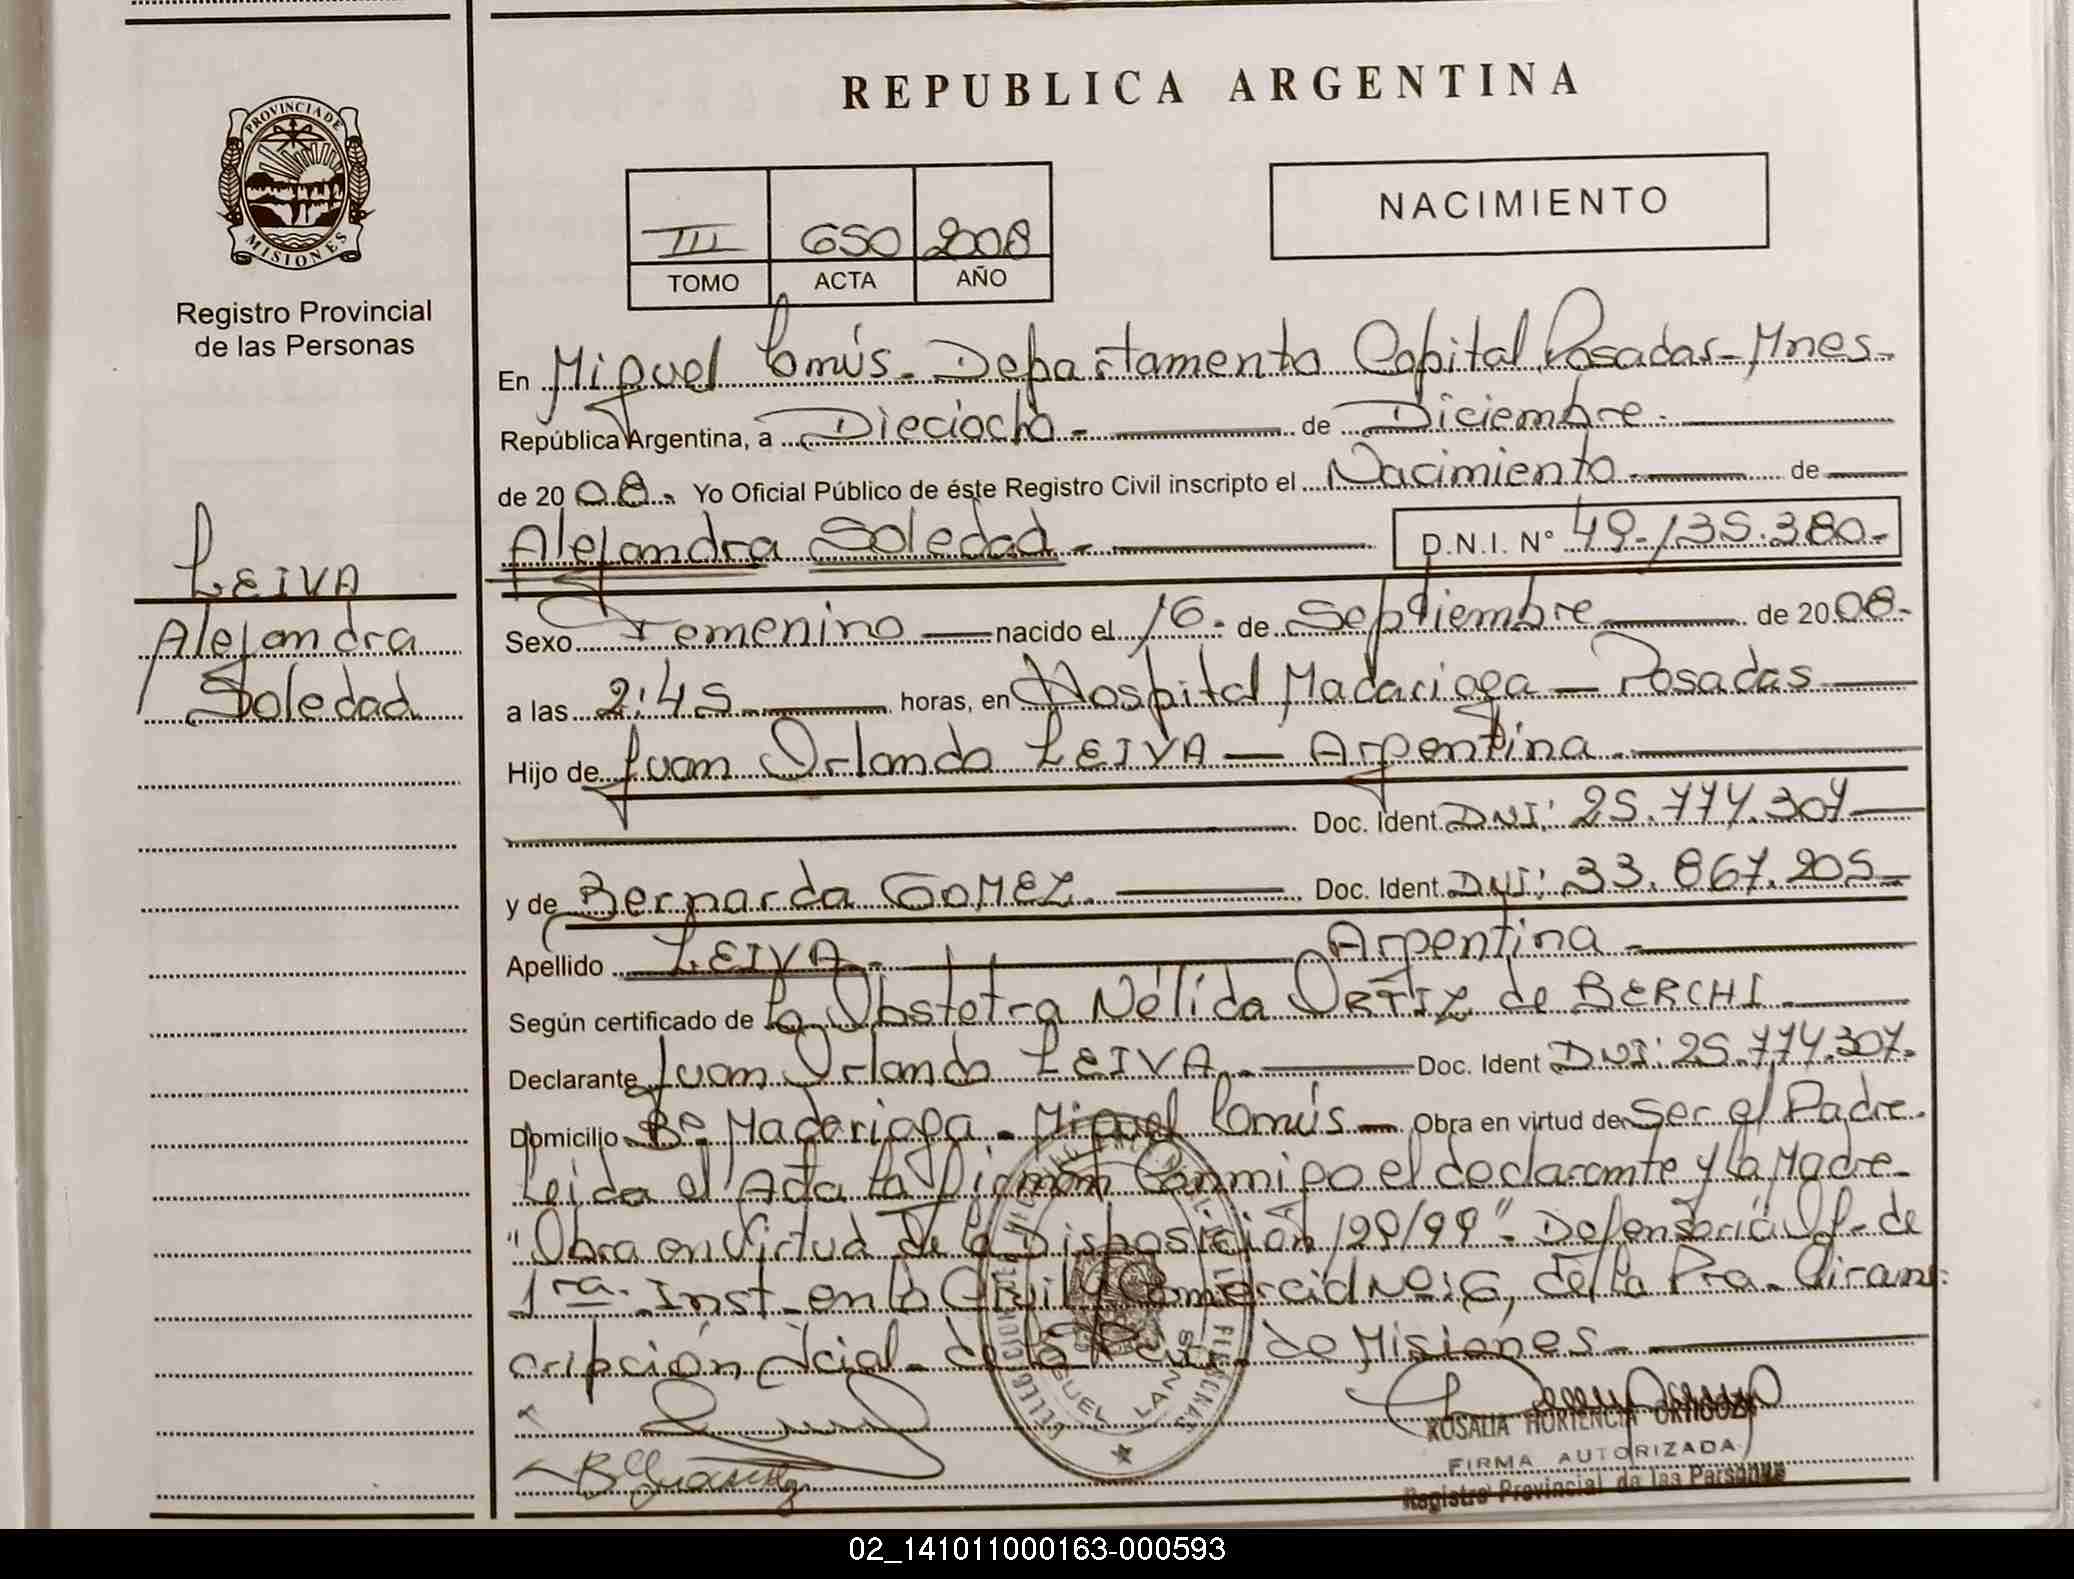 REPUBLICA ARGENTINA
PROVINCIA DE
MISIONES
Registro Provincial
de las Personas
LEIVA
Alejandra
Soledad
III 650 2008
TOMO ACTA AÑO
NACIMIENTO
En Miguel Lanús - Departamento Capital Posadas - Mnes -
República Argentina, a Dieciocho - de Diciembre -
de 2008 - Yo Oficial Público de éste Registro Civil inscripto el Nacimiento - de
Alejandra Soledad - D.N.I. N° 49.135.380 -
Sexo Femenino nacido el 16 - de Septiembre de 2008 -
a las 2:45 horas, en Hospital Madariaga - Posadas
Hijo de Juan Orlando LEIVA - Argentina -
Doc. Ident. DNI: 25.777.307
y de Bernarda GOMEZ - Doc. Ident. DNI: 33.867.205 -
Apellido LEIVA - Argentina -
Según certificado de la Obstetra Nélida ORTIZ de BERCHI
Declarante Juan Orlando LEIVA - Doc. Ident DNI: 25.777.307 -
Domicilio B° Madariaga - Miguel Lanús - Obra en virtud de Ser el Padre -
Leida el Acta la Firman Conmigo el declarante y la Madre -
"Obra en Virtud de la Disposición 199/99" - Defensoría Of. de
1ra. Inst. en lo Civil y Comercial No: 6, de la Pra. Circuns-
cripción Jcial. de la Pcia. de Misiones -
MIGUEL LANUS
ROSALIA HORTENCIA ORTIGOZA
FIRMA AUTORIZADA
Registro Provincial de las Personas
02_141011000163-000593